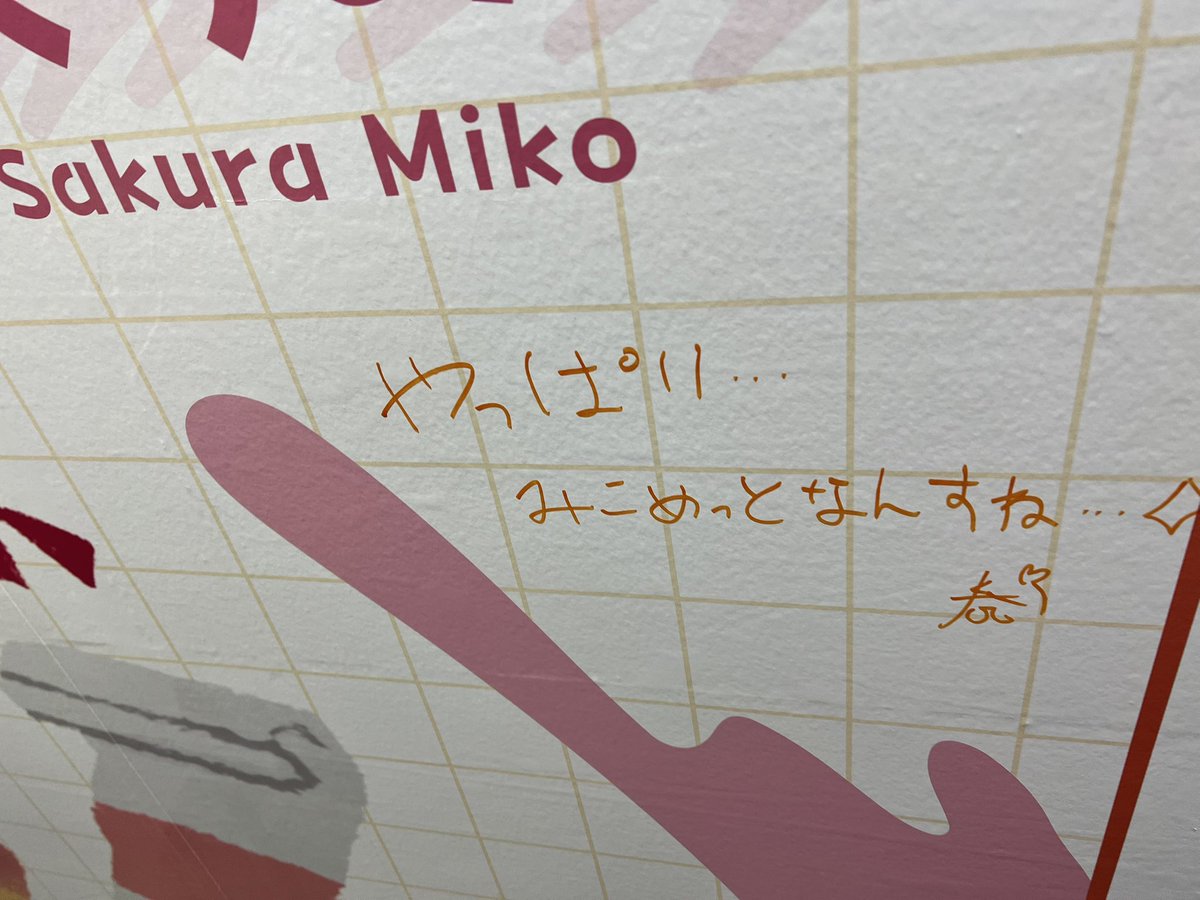 Sakura Miko
やっぱり…
みこめっとなんすね…
春